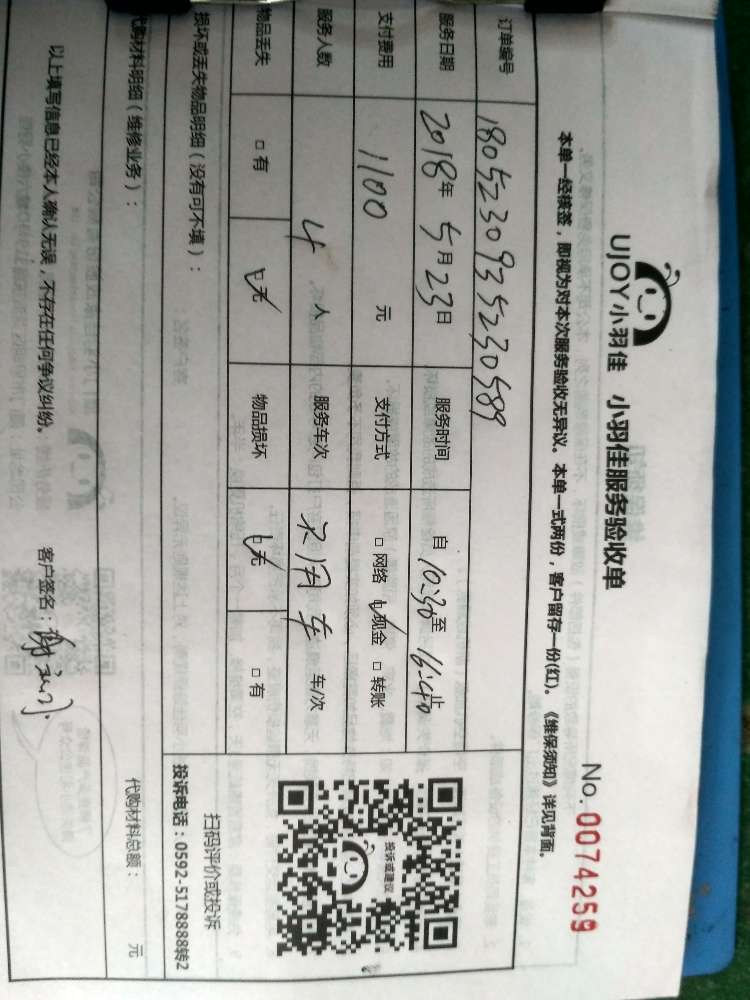 UJOY小羽佳 小羽佳服务验收单
No. 0074259
本单一经核签，即视为对本次服务验收无异议。本单一式两份，客户留存一份(红)。《维保须知》详见背面。
订单编号 1805230935230589
服务日期 2018年5月23日 服务时间 自10:30至16:40止
支付费用 1100 元 支付方式 □网络 ☑现金 □转账
服务人数 4 人 服务车次 不用车 车/次
物品丢失 □有 ☑无 物品损坏 ☑无 □有
投诉或建议
扫码评价或投诉
损坏或丢失物品明细（没有可不填）：
投诉电话：0592-5178888转2
代购材料明细（维修业务）：
代购材料总额： 元
以上填写信息已经本人确认无误，不存在任何争议纠纷。 客户签名：